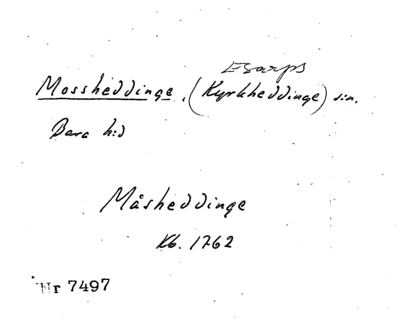 Esarps
Mossheddinge, (Kyrkheddinge) sn.
Bara hd
Måsheddinge
Kb. 1762
Nr 7497